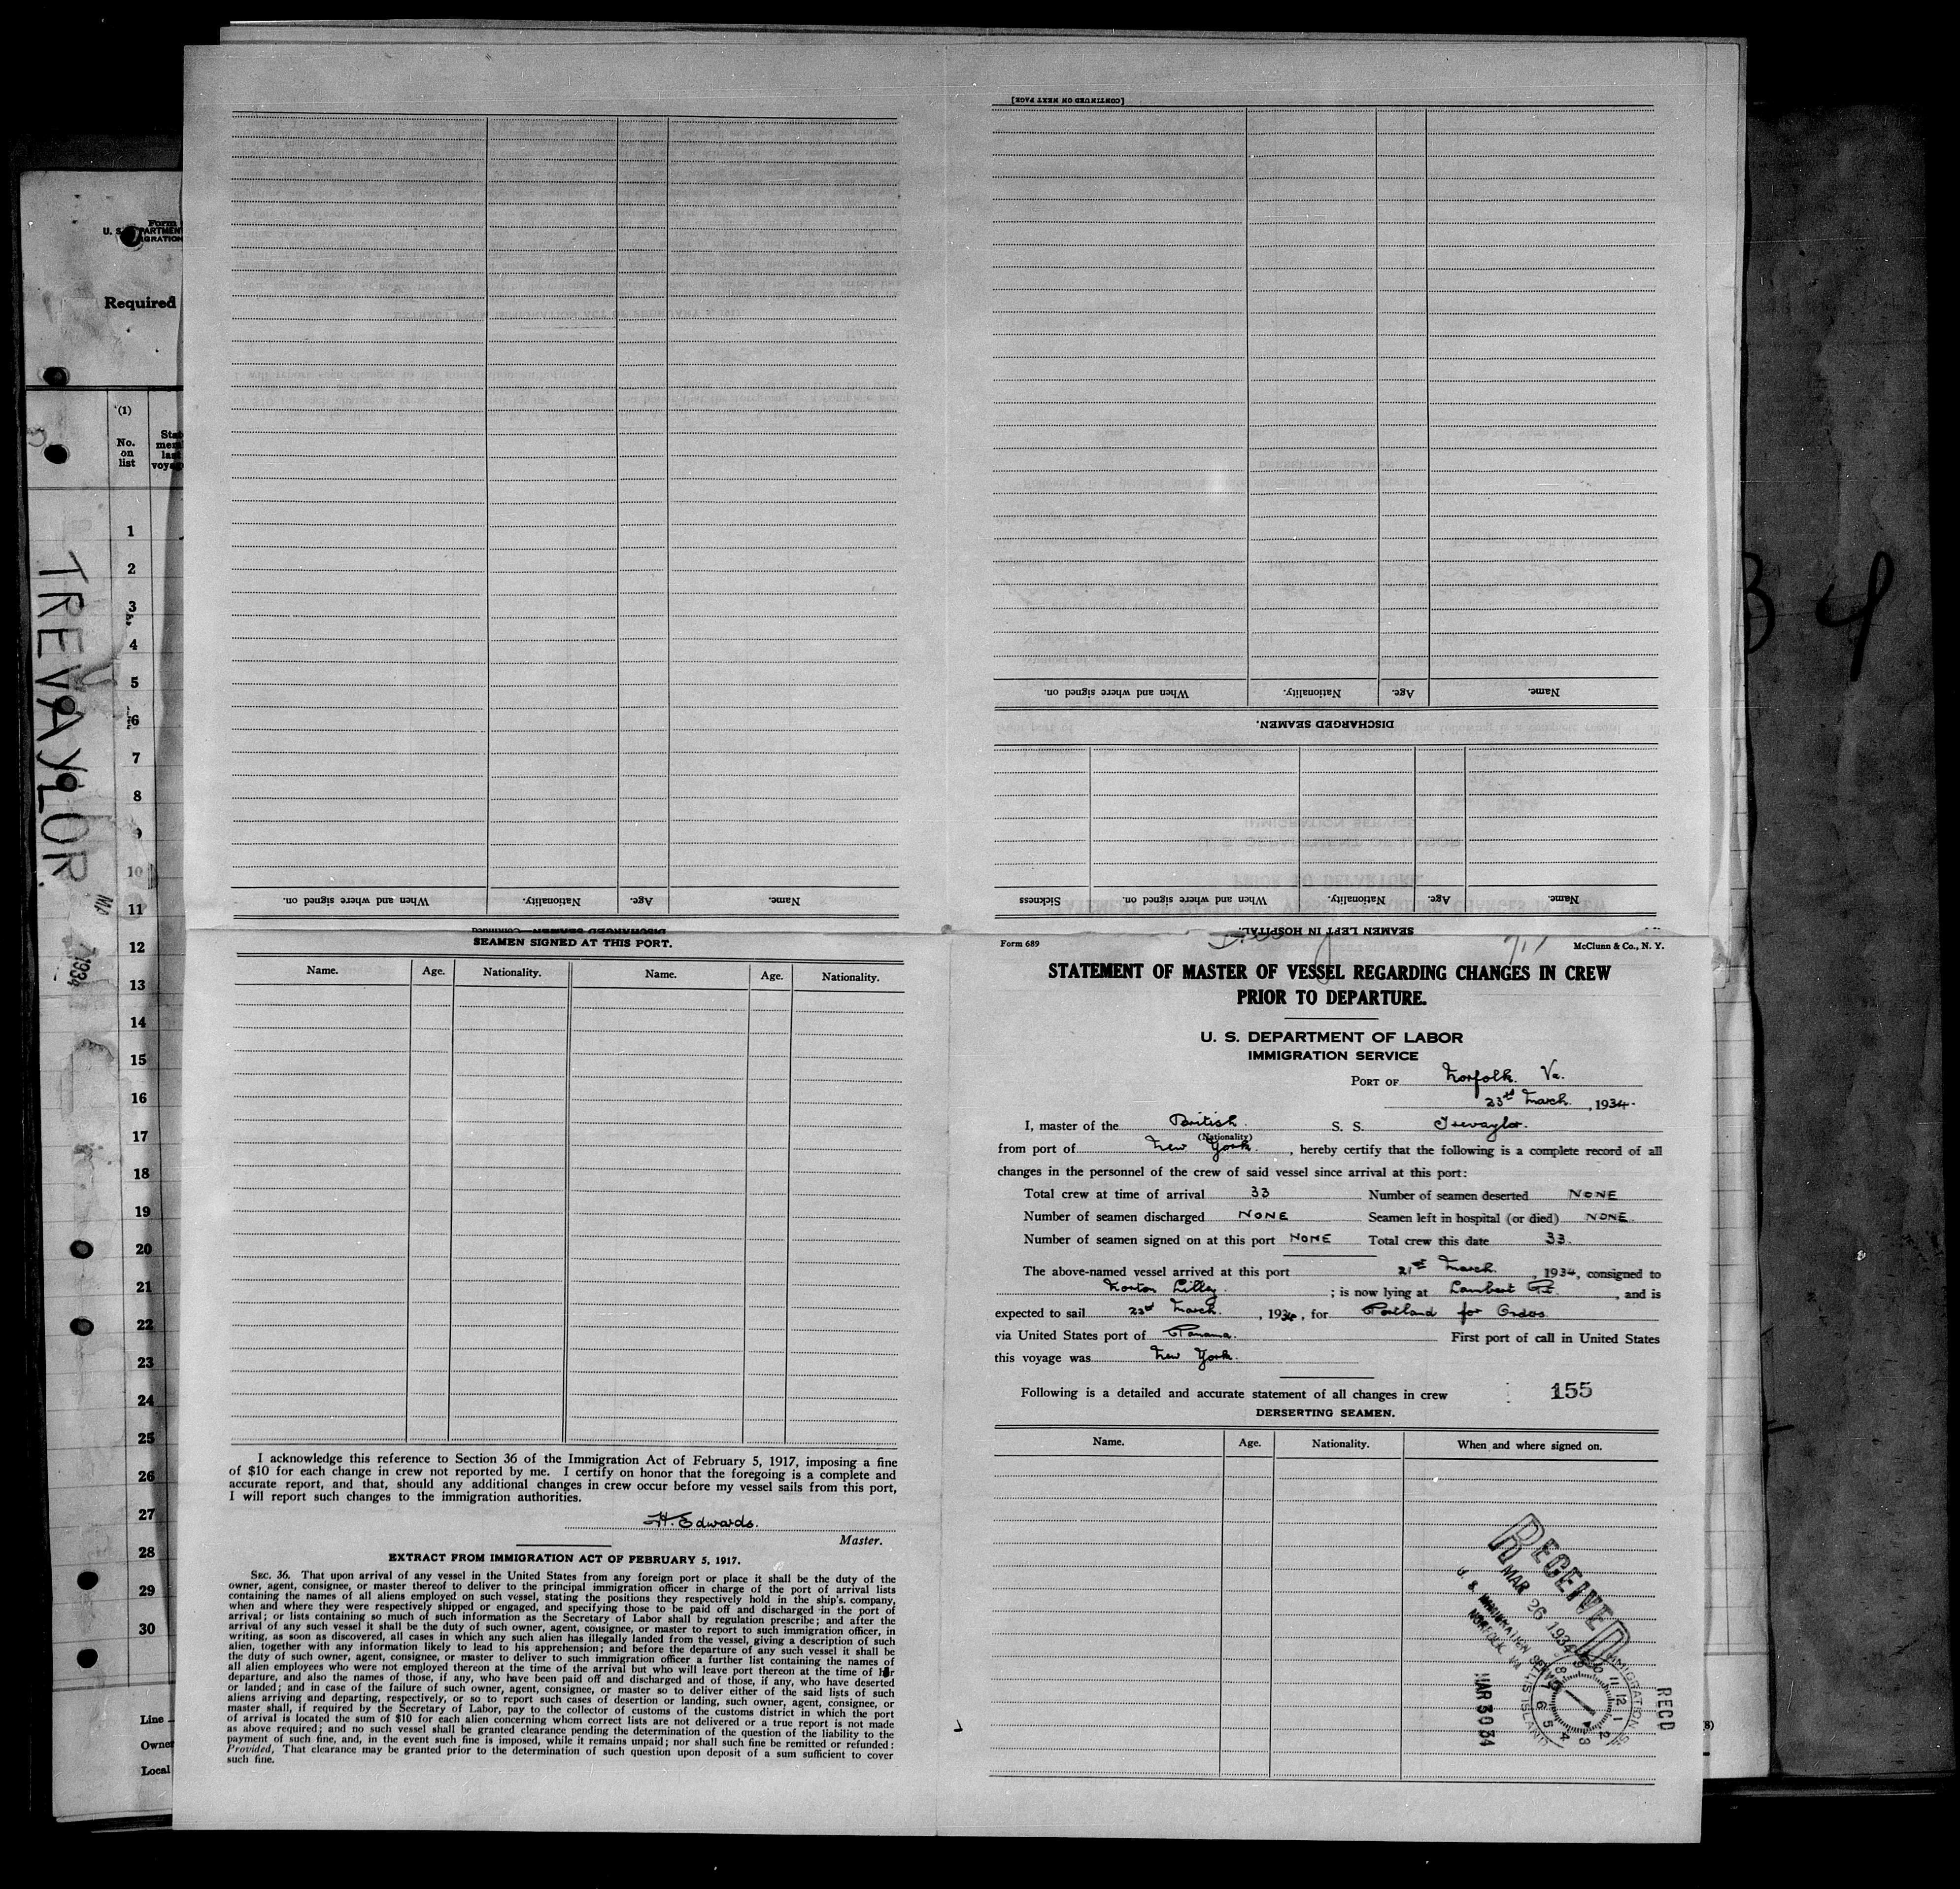 Form
U. S. DEPARTMENT
Required
(1)
No.
on
list
1
2
3
4
5
6
7
8
9
10
11
12
13
14
15
16
17
18
19
20
21
22
23
24
25
26
27
28
29
30
Line
Owner
Local
TREVAYLOR.
1934
34
[CONTINUED ON NEXT PAGE]
When and where signed on. Nationality. Age. Name.
DISCHARGED SEAMEN.
Sickness When and where signed on. Nationality. Age. Name.
SEAMEN LEFT IN HOSPITAL.
When and where signed on. Nationality. Age. Name.
DISCHARGED SEAMEN—Continued
SEAMEN SIGNED AT THIS PORT.
Name. Age. Nationality. Name. Age. Nationality.
I acknowledge this reference to Section 36 of the Immigration Act of February 5, 1917, imposing a fine
of $10 for each change in crew not reported by me. I certify on honor that the foregoing is a complete and
accurate report, and that, should any additional changes in crew occur before my vessel sails from this port,
I will report such changes to the immigration authorities.
H. Edwards.
Master.
EXTRACT FROM IMMIGRATION ACT OF FEBRUARY 5, 1917.
SEC. 36. That upon arrival of any vessel in the United States from any foreign port or place it shall be the duty of the
owner, agent, consignee, or master thereof to deliver to the principal immigration officer in charge of the port of arrival lists
containing the names of all aliens employed on such vessel, stating the positions they respectively hold in the ship's. company,
when and where they were respectively shipped or engaged, and specifying those to be paid off and discharged in the port of
arrival; or lists containing so much of such information as the Secretary of Labor shall by regulation prescribe; and after the
arrival of any such vessel it shall be the duty of such owner, agent, consignee, or master to report to such immigration officer, in
writing, as soon as discovered, all cases in which any such alien has illegally landed from the vessel, giving a description of such
alien, together with any information likely to lead to his apprehension; and before the departure of any such vessel it shall be
the duty of such owner, agent, consignee, or master to deliver to such immigration officer a further list containing the names of
all alien employees who were not employed thereon at the time of the arrival but who will leave port thereon at the time of her
departure, and also the names of those, if any, who have been paid off and discharged and of those, if any, who have deserted
or landed; and in case of the failure of such owner, agent, consignee, or master so to deliver either of the said lists of such
aliens arriving and departing, respectively, or so to report such cases of desertion or landing, such owner, agent, consignee, or
master shall, if required by the Secretary of Labor, pay to the collector of customs of the customs district in which the port
of arrival is located the sum of $10 for each alien concerning whom correct lists are not delivered or a true report is not made
as above required; and no such vessel shall be granted clearance pending the determination of the question of the liability to the
payment of such fine, and, in the event such fine is imposed, while it remains unpaid; nor shall such fine be remitted or refunded:
Provided, That clearance may be granted prior to the determination of such question upon deposit of a sum sufficient to cover
such fine.
Form 689 McClunn & Co., N. Y.
STATEMENT OF MASTER OF VESSEL REGARDING CHANGES IN CREW
PRIOR TO DEPARTURE.
U. S. DEPARTMENT OF LABOR
IMMIGRATION SERVICE
PORT OF Norfolk. Va.
23rd March, 1934.
I, master of the British. S. S. Trevaylor.
(Nationality)
from port of New York., hereby certify that the following is a complete record of all
changes in the personnel of the crew of said vessel since arrival at this port:
Total crew at time of arrival 33 Number of seamen deserted NONE
Number of seamen discharged NONE Seamen left in hospital (or died) NONE.
Number of seamen signed on at this port NONE Total crew this date 33.
The above-named vessel arrived at this port 21st March., 1934, consigned to
Norton Lilley.; is now lying at Lambert Pt., and is
expected to sail 23rd March., 1934, for Portland for Orders.
via United States port of Panama. First port of call in United States
this voyage was New York.
Following is a detailed and accurate statement of all changes in crew 155
DERSERTING SEAMEN.
Name. Age. Nationality. When and where signed on.
RECEIVED
MAR 26 1934
U S IMMIGRATION SERVICE
NORFOLK VA
MAR 30 34
RECD